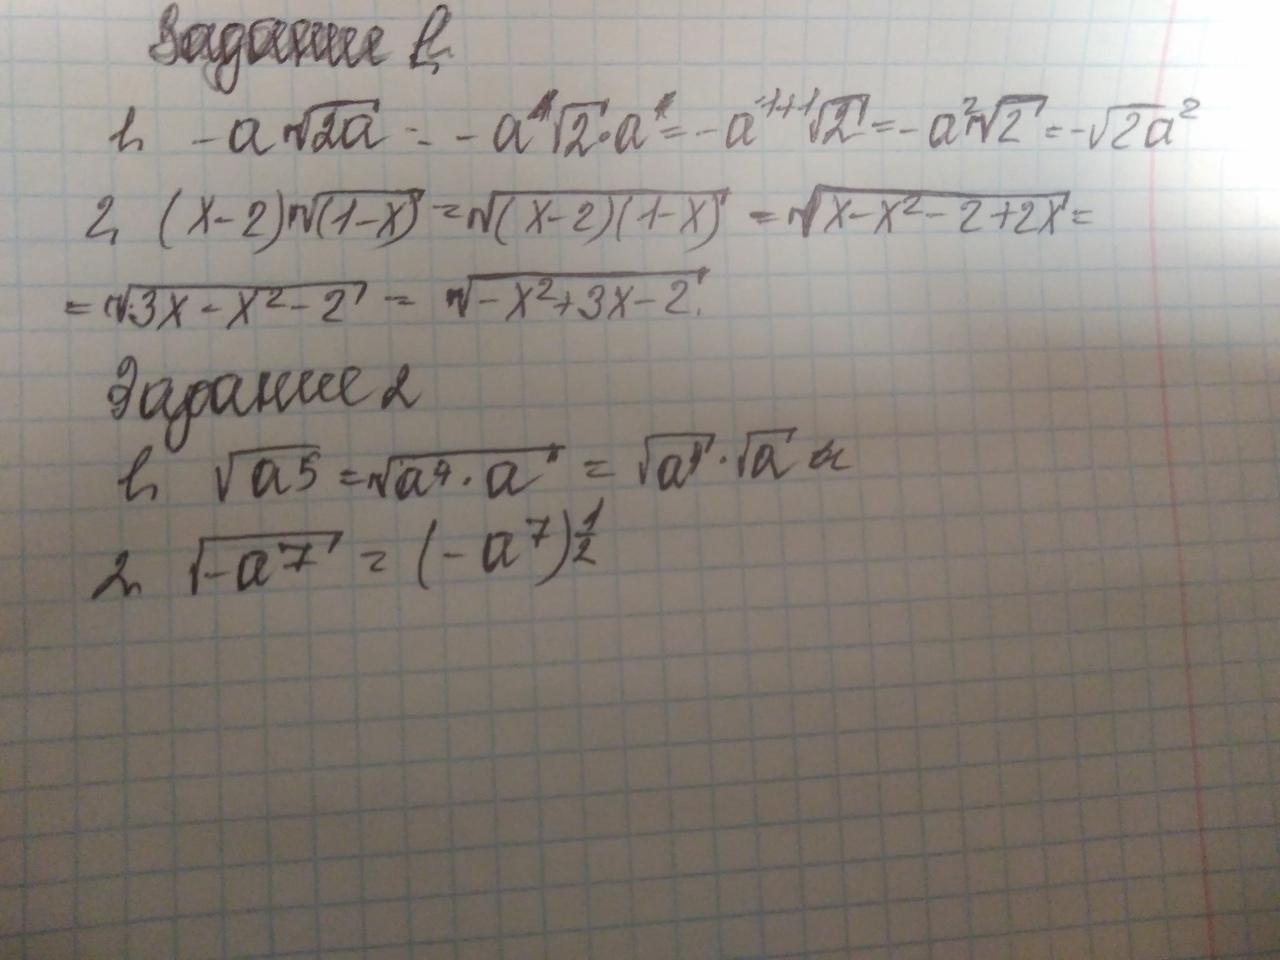 Задание 1.
1. -a√2a = -a¹√2·a¹ = -a¹⁺¹√2 = -a²√2 = -√2a²
2. (x-2)√(1-x) = √(x-2)(1-x) = √x-x²-2+2x =
= √3x-x²-2 = √-x²+3x-2.
Задание 2
1. √a5 = √a4·a = √a⁴·√a
2. √-a7 = (-a⁷)½